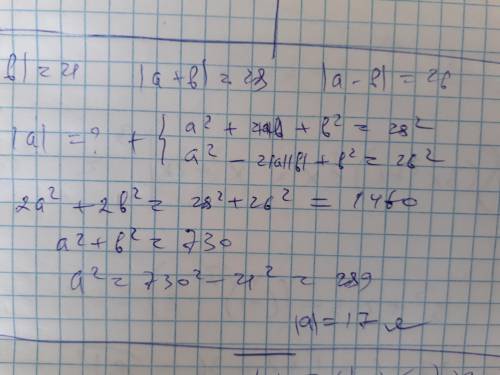 в| = 21 |a + в| = 28 |a - в| = 26
|a| = ? + { a² + 2ab + в² = 28²
a² - 2|a||в| + в² = 26²
2a² + 2в² = 28² + 26² = 1460
a² + в² = 730
a² = 730² - 21² = 289
|a| = 17